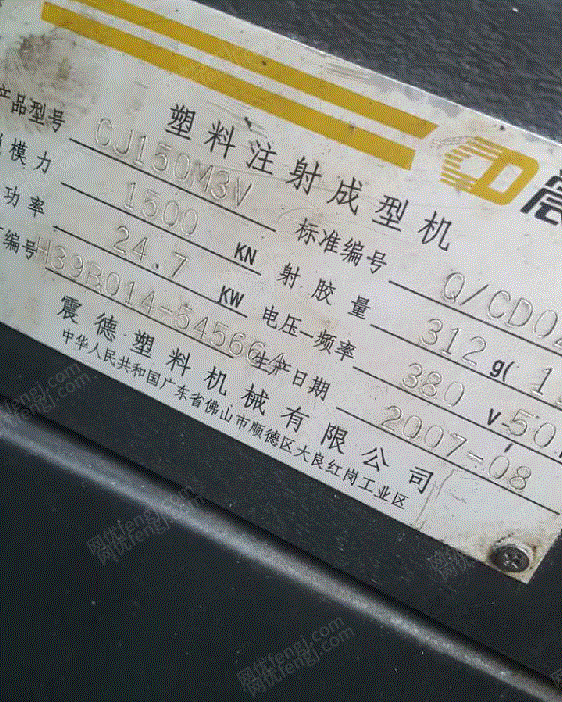 塑料注射成型机
产品型号 CJ150M3V 标准编号 Q/CD0
模力 1500 KN 射胶量 312 g(
功率 24.7 KW 电压-频率 380 V-50
编号 H39B014-54566 生产日期 2007-08
震德塑料机械有限公司
中华人民共和国广东省佛山市顺德区大良红岗工业区
网优fengj.com
网优fengj.com
网优fengj.com
网优fengj.com